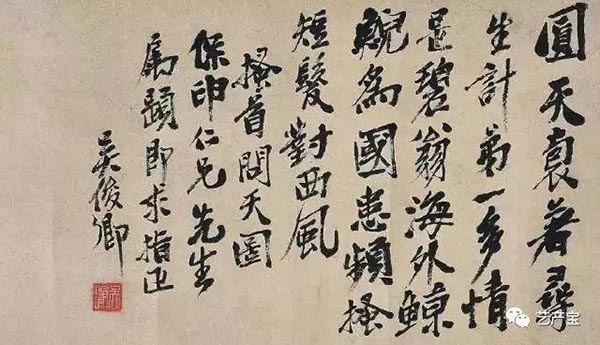 圓天裏著尋
生計第一多情
是碧翁海外鯨
鯢為國患頻搔
短髮對西風
搔首問天圖
保印仁兄先生
屬題即求指正
吳俊卿
艺产宝